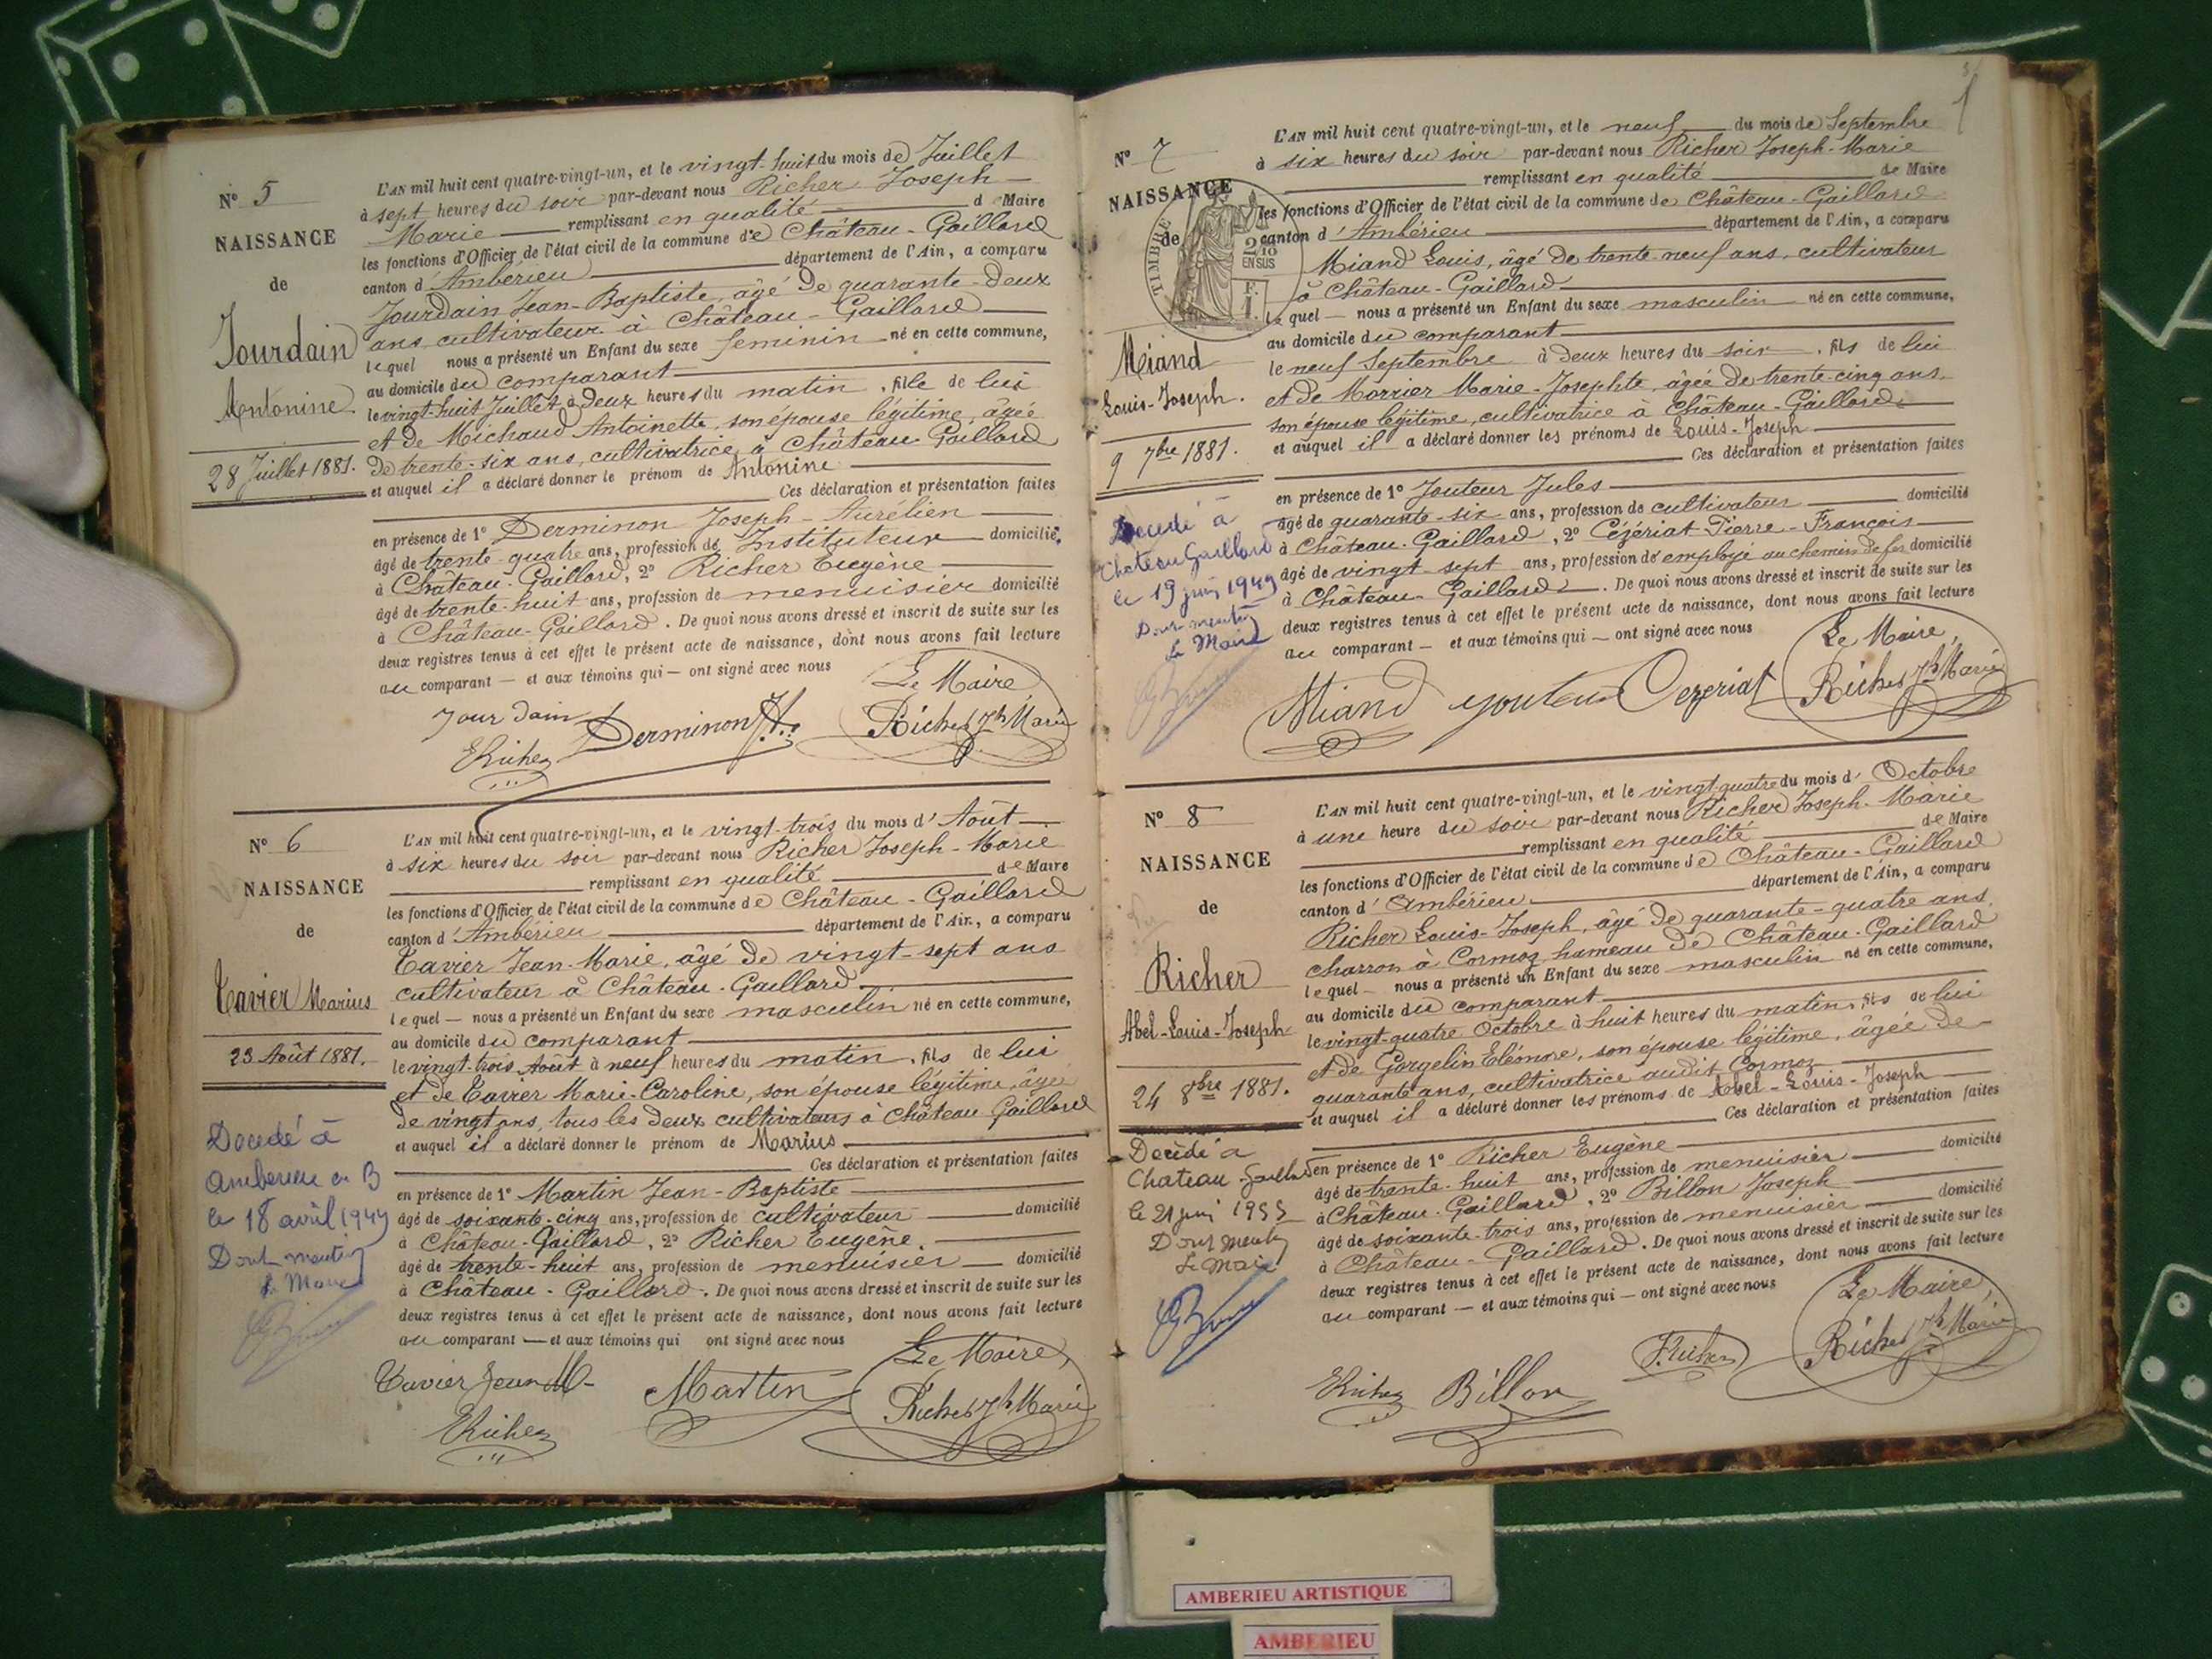 N° 5
NAISSANCE
de
Jourdain
Antonine
28 Juillet 1881.
L'AN mil huit cent quatre-vingt-un, et le vingt-huit du mois de Juillet
à sept heures du soir par-devant nous Richer Joseph-
Marie remplissant en qualité de Maire
les fonctions d'Officier de l'état civil de la commune de Château-Gaillard
canton d'Ambérieu département de l'Ain, a comparu
Jourdain Jean-Baptiste, âgé de quarante-deux
ans cultivateur à Château-Gaillard
lequel nous a présenté un Enfant du sexe féminin né en cette commune,
au domicile du comparant
le vingt-huit Juillet à deux heures du matin, fille de lui
et de Michaud Antoinette, son épouse légitime, âgée
de trente-six ans, cultivatrice à Château-Gaillard
et auquel il a déclaré donner le prénom de Antonine
Ces déclaration et présentation faites
en présence de 1° Derminon Joseph-Aurélien
âgé de trente-quatre ans, profession de Instituteur domicilié
à Château-Gaillard, 2° Richer Eugène
âgé de trente-huit ans, profession de menuisier domicilié
à Château-Gaillard. De quoi nous avons dressé et inscrit de suite sur les
deux registres tenus à cet effet le présent acte de naissance, dont nous avons fait lecture
au comparant — et aux témoins qui — ont signé avec nous
Le Maire,
Jourdain Derminon Richer Jh Marie
ERicher
N° 6
NAISSANCE
de
Tavier Marius
23 Août 1881.
Décédé à
Amberieu en B
le 18 avril 1949
Dont mention
Le Maire
L'AN mil huit cent quatre-vingt-un, et le vingt-trois du mois d'Août
à six heures du soir par-devant nous Richer Joseph-Marie
remplissant en qualité de Maire
les fonctions d'Officier de l'état civil de la commune de Château-Gaillard
canton d'Ambérieu département de l'Ain, a comparu
Tavier Jean-Marie, âgé de vingt-sept ans
cultivateur à Château-Gaillard
lequel — nous a présenté un Enfant du sexe masculin né en cette commune,
au domicile du comparant
le vingt-trois Août à neuf heures du matin, fils de lui
et de Tavier Marie-Caroline, son épouse légitime, âgée
de vingt ans, tous les deux cultivateurs à Château-Gaillard
et auquel il a déclaré donner le prénom de Marius
Ces déclaration et présentation faites
en présence de 1° Martin Jean-Baptiste
âgé de soixante-cinq ans, profession de cultivateur domicilié
à Château-Gaillard, 2° Richer Eugène
âgé de trente-huit ans, profession de menuisier domicilié
à Château-Gaillard. De quoi nous avons dressé et inscrit de suite sur les
deux registres tenus à cet effet le présent acte de naissance, dont nous avons fait lecture
au comparant — et aux témoins qui ont signé avec nous
Le Maire,
Tavier Jean M- Martin Richer Jh Marie
ERicher
N° 7
NAISSANCE
de
TIMBRE
2/10
EN SUS
Miand
Louis-Joseph.
9 7bre 1881.
Décédé à
Chateau Gaillard
le 19 juin 1949
Dont mention
Le Maire
L'AN mil huit cent quatre-vingt-un, et le neuf du mois de Septembre
à six heures du soir par-devant nous Richer Joseph-Marie
remplissant en qualité de Maire
les fonctions d'Officier de l'état civil de la commune de Château-Gaillard
canton d'Ambérieu département de l'Ain, a comparu
Miand Louis, âgé de trente-neuf ans, cultivateur
à Château-Gaillard
lequel — nous a présenté un Enfant du sexe masculin né en cette commune,
au domicile du comparant
le neuf Septembre à deux heures du soir, fils de lui
et de Morrier Marie-Josephte, âgée de trente-cinq ans,
son épouse légitime, cultivatrice à Château-Gaillard
et auquel il a déclaré donner les prénoms de Louis-Joseph
Ces déclaration et présentation faites
en présence de 1° Jouteur Jules
âgé de quarante-six ans, profession de cultivateur domicilié
à Château-Gaillard, 2° Cézériat Pierre-François
âgé de vingt-sept ans, profession de employé au chemin de fer domicilié
à Château-Gaillard. De quoi nous avons dressé et inscrit de suite sur les
deux registres tenus à cet effet le présent acte de naissance, dont nous avons fait lecture
au comparant — et aux témoins qui — ont signé avec nous
Le Maire,
Miand Jouteur Cezeriat Richer Jh Marie
N° 8
NAISSANCE
de
Richer
Abel-Louis-Joseph
24 8bre 1881.
Décédé à
Chateau-Gaillard
le 21 juin 1955
Dont mention
Le Maire
L'AN mil huit cent quatre-vingt-un, et le vingt-quatre du mois d'Octobre
à une heure du soir par-devant nous Richer Joseph-Marie
remplissant en qualité de Maire
les fonctions d'Officier de l'état civil de la commune de Château-Gaillard
canton d'Ambérieu département de l'Ain, a comparu
Richer Louis-Joseph, âgé de quarante-quatre ans,
charron à Cormoz hameau de Château-Gaillard
lequel — nous a présenté un Enfant du sexe masculin né en cette commune,
au domicile du comparant
le vingt-quatre Octobre à huit heures du matin, fils de lui
et de Gorgelin Eléonore, son épouse légitime, âgée de
quarante ans, cultivatrice audit Cormoz
et auquel il a déclaré donner les prénoms de Abel-Louis-Joseph
Ces déclaration et présentation faites
en présence de 1° Richer Eugène domicilié
âgé de trente-huit ans, profession de menuisier
à Château-Gaillard, 2° Billon Joseph
âgé de soixante-trois ans, profession de menuisier domicilié
à Château-Gaillard. De quoi nous avons dressé et inscrit de suite sur les
deux registres tenus à cet effet le présent acte de naissance, dont nous avons fait lecture
au comparant — et aux témoins qui — ont signé avec nous
Le Maire,
ERicher Billon Richer Jh Marie
AMBERIEU ARTISTIQUE
AMBERIEU